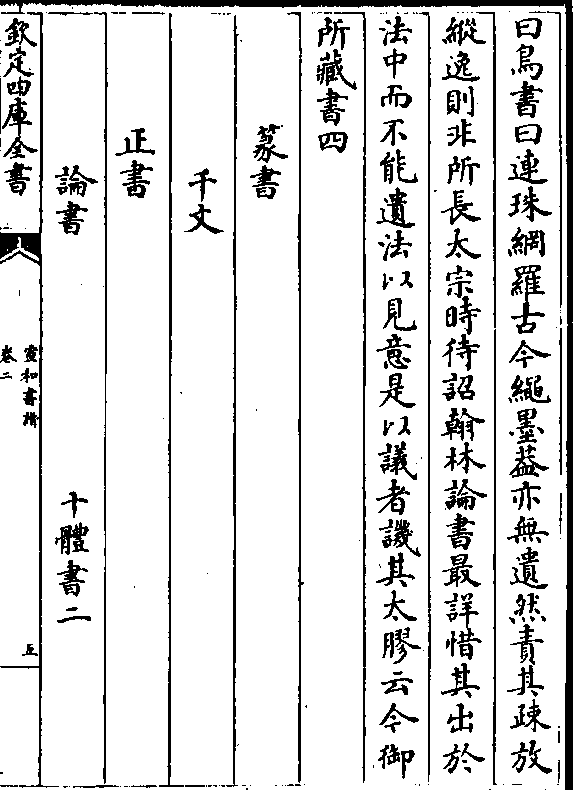 曰鳥書曰連珠網羅古今繩墨葢亦無遺然責其疎放
縱逸則非所長太宗時待詔翰林論書最詳惜其出於
法中而不能遺法以見意是以議者譏其太膠云今御
所藏書四
篆書
千文
正書
論書 十體書二
欽定四庫全書
宣和書譜
卷二
五